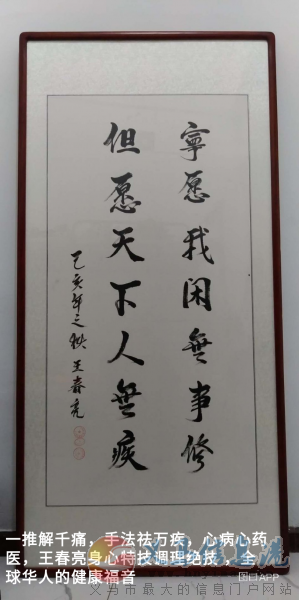 寧愿我闲無事修
但愿天下人無疾
己亥年之秋王春亮
一推解千痛，手法祛万疾，心病心药
医，王春亮身心特技调理绝技，全
球华人的健康福音
APP
义乌市最大的信息门户网站